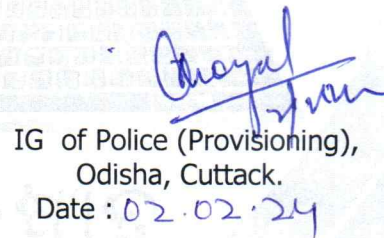 IG of Police (Provisioning),
Odisha, Cuttack.
Date : 02.02.24